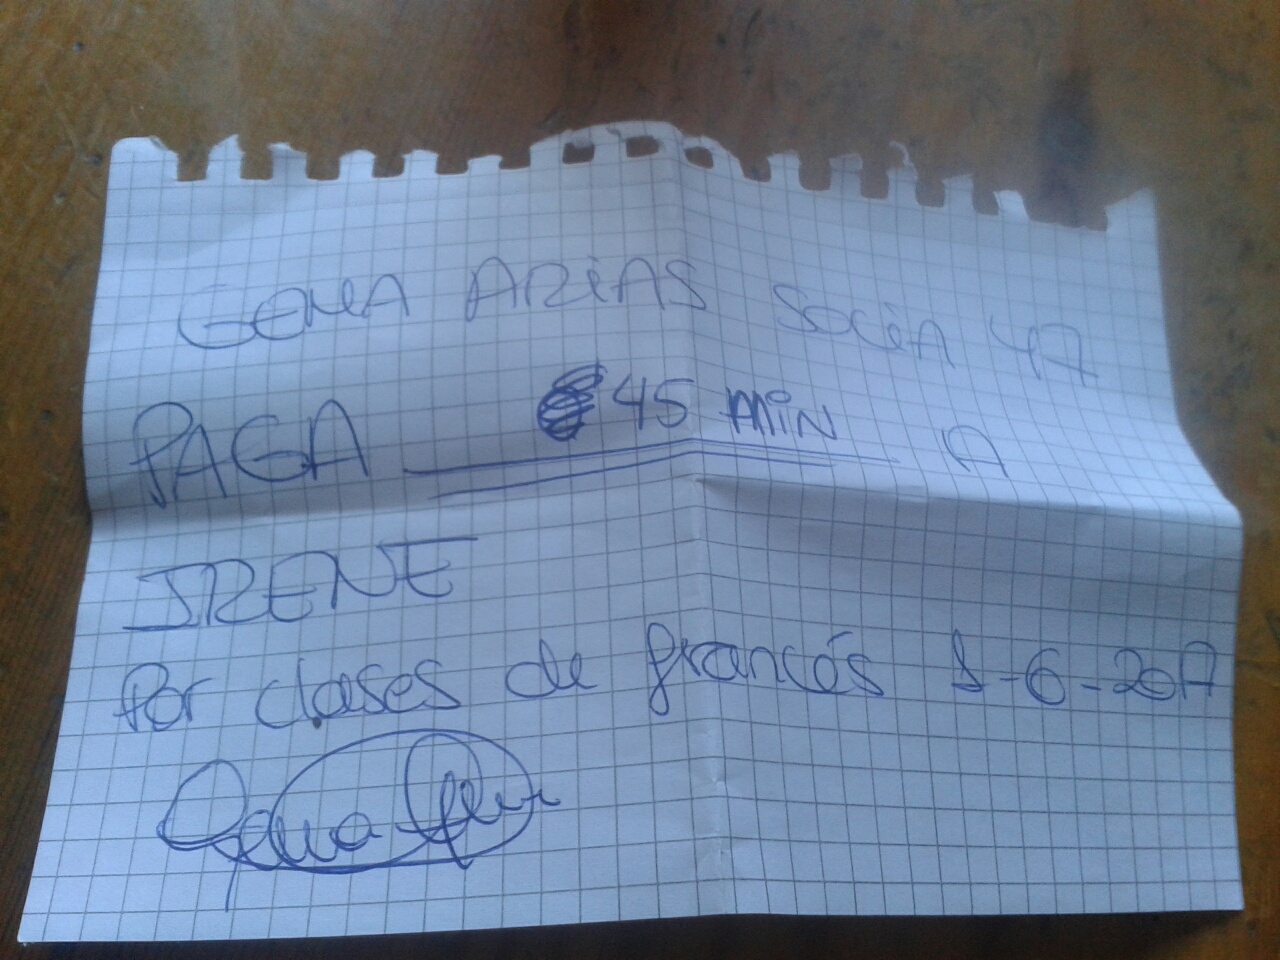 GEMA ARIAS SOCIA 47
PAGA 45 MIN A
IRENE
Por clases de francés 1-6-2017
Gema Arias